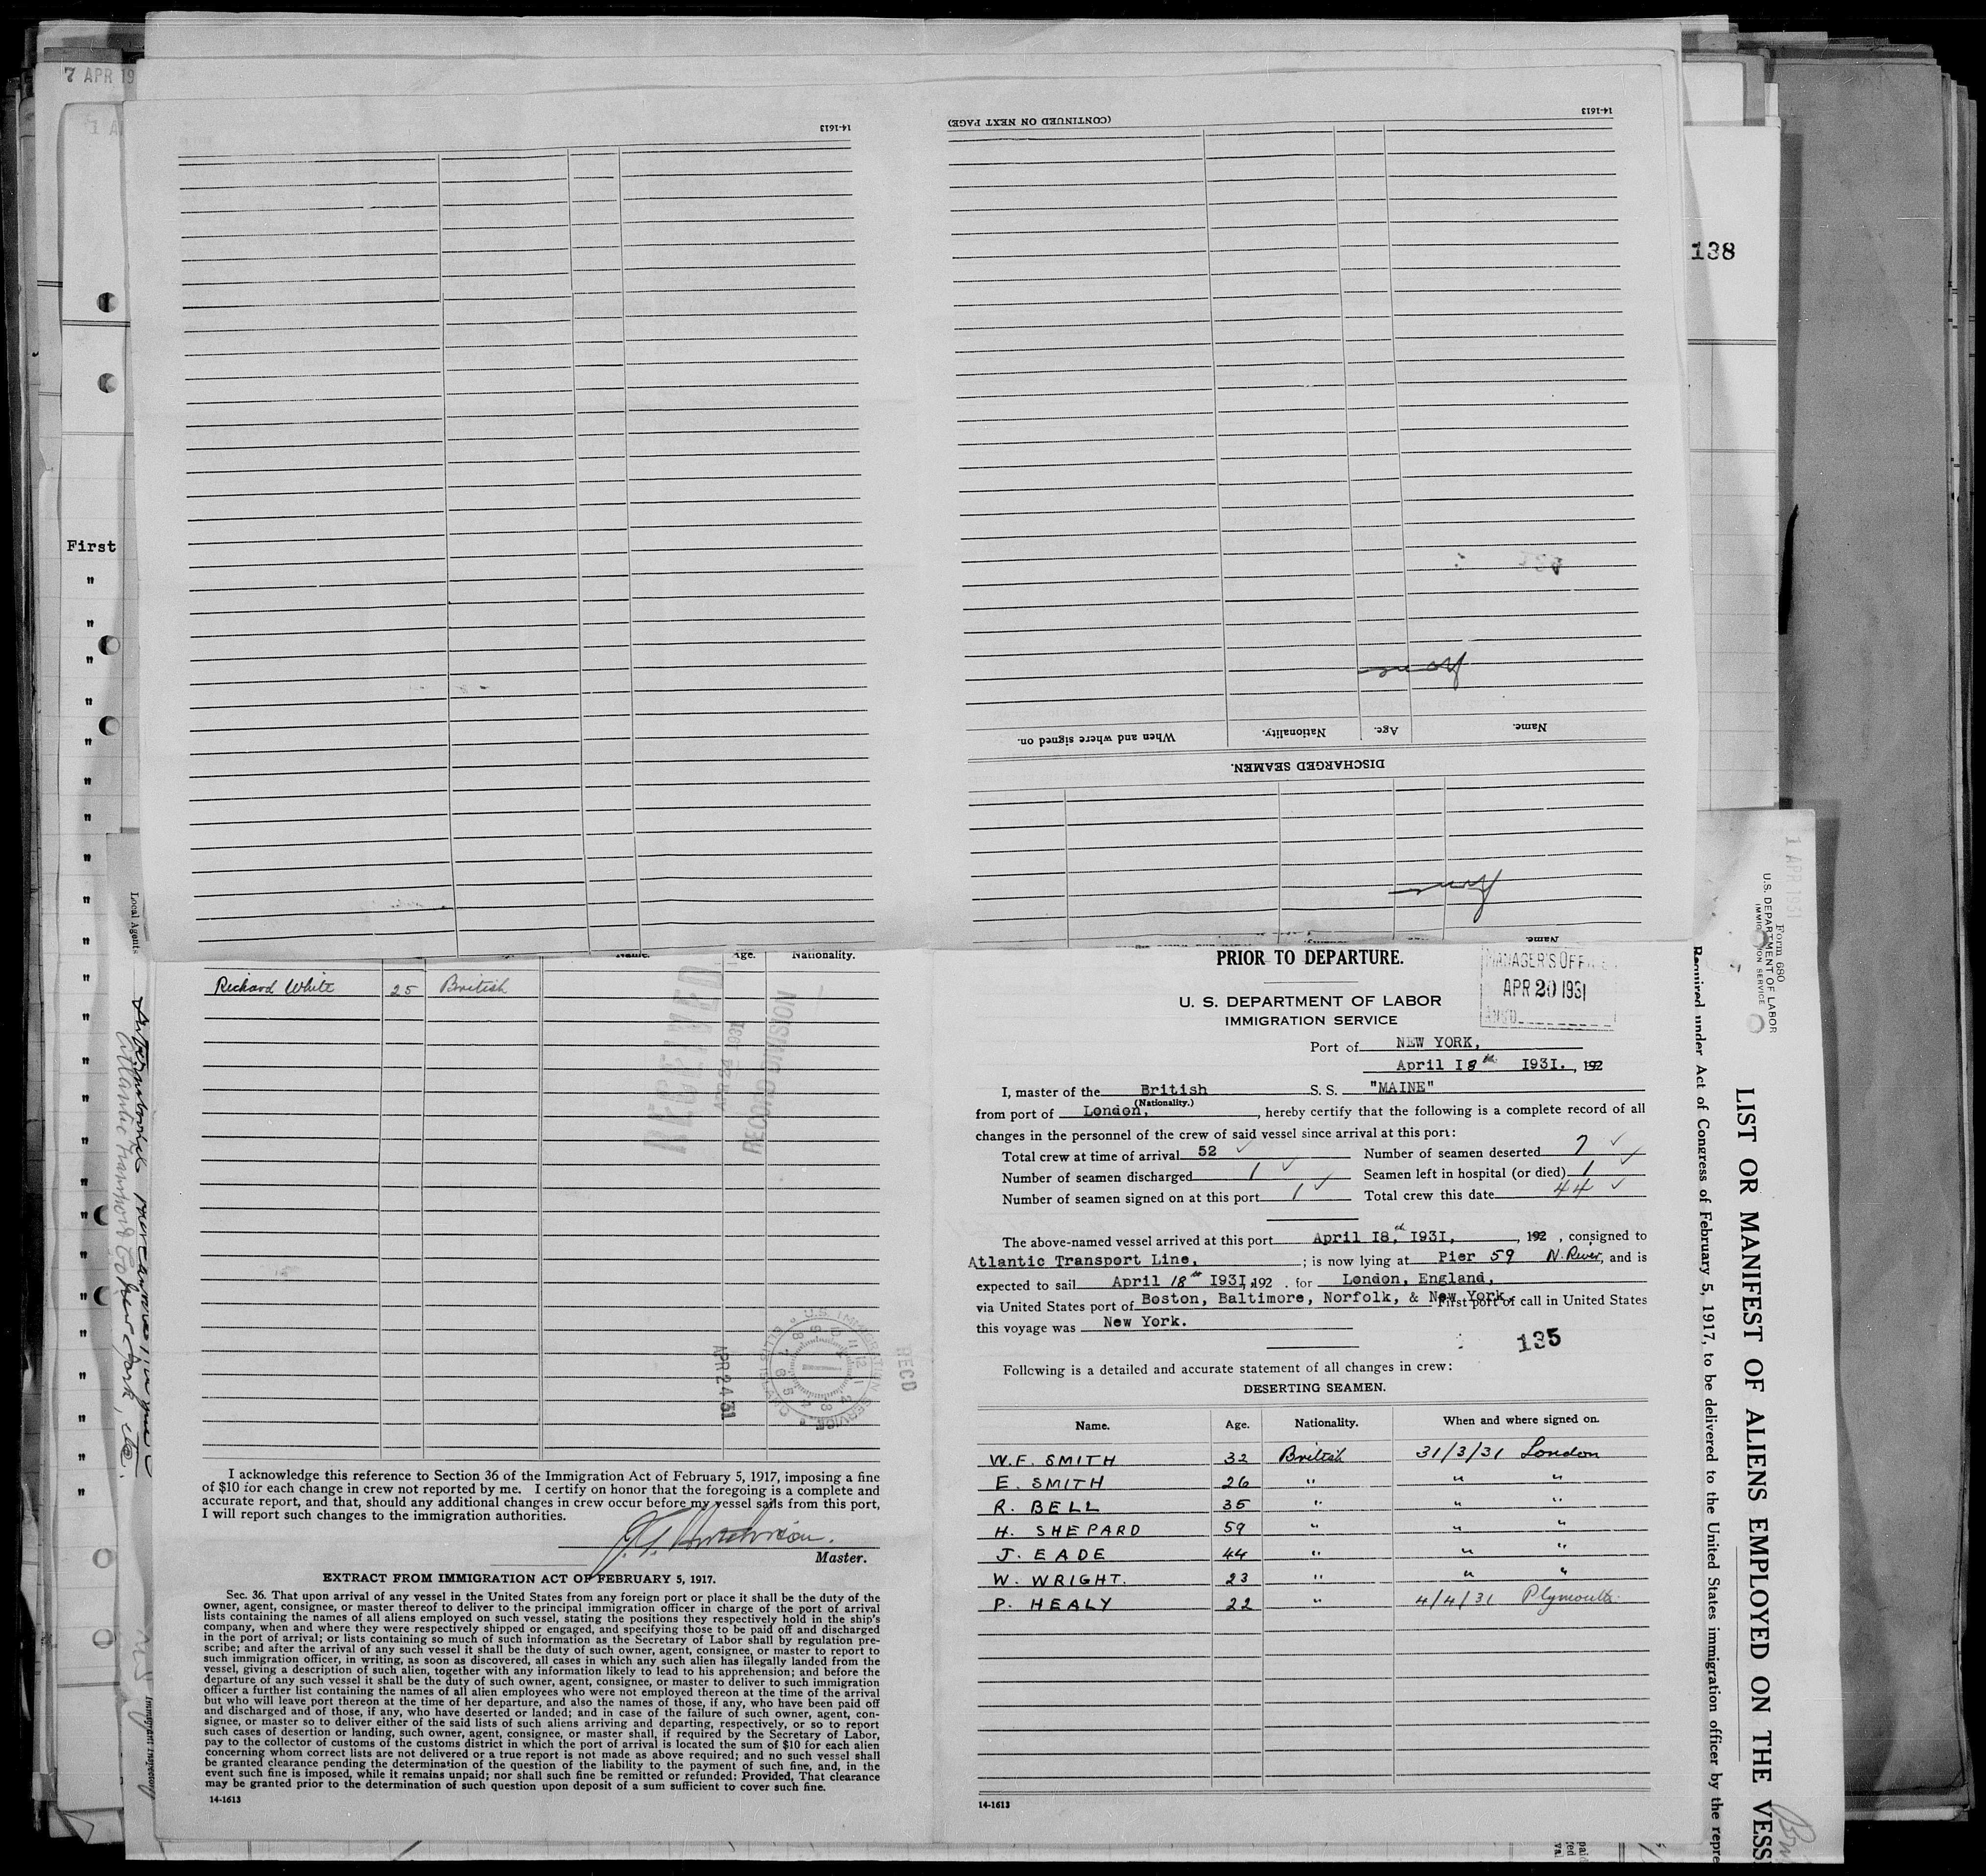 7 APR 19
14-1613
(CONTINUED ON NEXT PAGE)
14-1613
138
First
Name.
Age.
Nationality.
When and where signed on.
DISCHARGED SEAMEN.
Name.
Local Agents
Immigrant Inspector
Name. Age. Nationality.
Richard White 25 British
RECEIVED
APR 24 1931
RECORD DIVISION
U.S. IMMIGRATION SERVICE
APR 24 31
REC'D
I acknowledge this reference to Section 36 of the Immigration Act of February 5, 1917, imposing a fine
of $10 for each change in crew not reported by me. I certify on honor that the foregoing is a complete and
accurate report, and that, should any additional changes in crew occur before my vessel sails from this port,
I will report such changes to the immigration authorities.
Master.
EXTRACT FROM IMMIGRATION ACT OF FEBRUARY 5, 1917.
Sec. 36. That upon arrival of any vessel in the United States from any foreign port or place it shall be the duty of the
owner, agent, consignee, or master thereof to deliver to the principal immigration officer in charge of the port of arrival
lists containing the names of all aliens employed on such vessel, stating the positions they respectively hold in the ship's
company, when and where they were respectively shipped or engaged, and specifying those to be paid off and discharged
in the port of arrival; or lists containing so much of such information as the Secretary of Labor shall by regulation pre-
scribe; and after the arrival of any such vessel it shall be the duty of such owner, agent, consignee, or master to report to
such immigration officer, in writing, as soon as discovered, all cases in which any such alien has illegally landed from the
vessel, giving a description of such alien, together with any information likely to lead to his apprehension; and before the
departure of any such vessel it shall be the duty of such owner, agent, consignee, or master to deliver to such immigration
officer a further list containing the names of all alien employees who were not employed thereon at the time of the arrival
but who will leave port thereon at the time of her departure, and also the names of those, if any, who have been paid off
and discharged and of those, if any, who have deserted or landed; and in case of the failure of such owner, agent, con-
signee, or master so to deliver either of the said lists of such aliens arriving and departing, respectively, or so to report
such cases of desertion or landing, such owner, agent, consignee, or master shall, if required by the Secretary of Labor,
pay to the collector of customs of the customs district in which the port of arrival is located the sum of $10 for each alien
concerning whom correct lists are not delivered or a true report is not made as above required; and no such vessel shall
be granted clearance pending the determination of the question of the liability to the payment of such fine, and, in the
event such fine is imposed, while it remains unpaid; nor shall such fine be remitted or refunded: Provided, That clearance
may be granted prior to the determination of such question upon deposit of a sum sufficient to cover such fine.
14-1613
PRIOR TO DEPARTURE.
MANAGER'S OFFICE
APR 20 1931
ANSD.
U. S. DEPARTMENT OF LABOR
IMMIGRATION SERVICE
Port of NEW YORK,
April 18th 1931. , 192
I, master of the British S. S. "MAINE"
(Nationality.)
from port of London, , hereby certify that the following is a complete record of all
changes in the personnel of the crew of said vessel since arrival at this port:
Total crew at time of arrival 52 Number of seamen deserted 7
Number of seamen discharged 1 Seamen left in hospital (or died) 1
Number of seamen signed on at this port 1 Total crew this date 44
The above-named vessel arrived at this port April 18,th 1931, , 192 , consigned to
Atlantic Transport Line, ; is now lying at Pier 59 N. River, and is
expected to sail April 18th 1931, 192 . for London, England,
via United States port of Boston, Baltimore, Norfolk, & New York. First port of call in United States
this voyage was New York.
135
Following is a detailed and accurate statement of all changes in crew:
DESERTING SEAMEN.
Name. Age. Nationality. When and where signed on.
W.F. SMITH 32 British 31/3/31 London
E. SMITH 26 " " "
R. BELL 35 " " "
H. SHEPARD 59 " " "
J. EADE 44 " " "
W. WRIGHT. 23 " " "
P. HEALY 22 " 4/4/31 Plymouth
14-1613
1 APR 1931
Form 680
U.S. DEPARTMENT OF LABOR
IMMIGRATION SERVICE
LIST OR MANIFEST OF ALIENS EMPLOYED ON THE VESS
Required under Act of Congress of February 5, 1917, to be delivered to the United States immigration officer by the repre